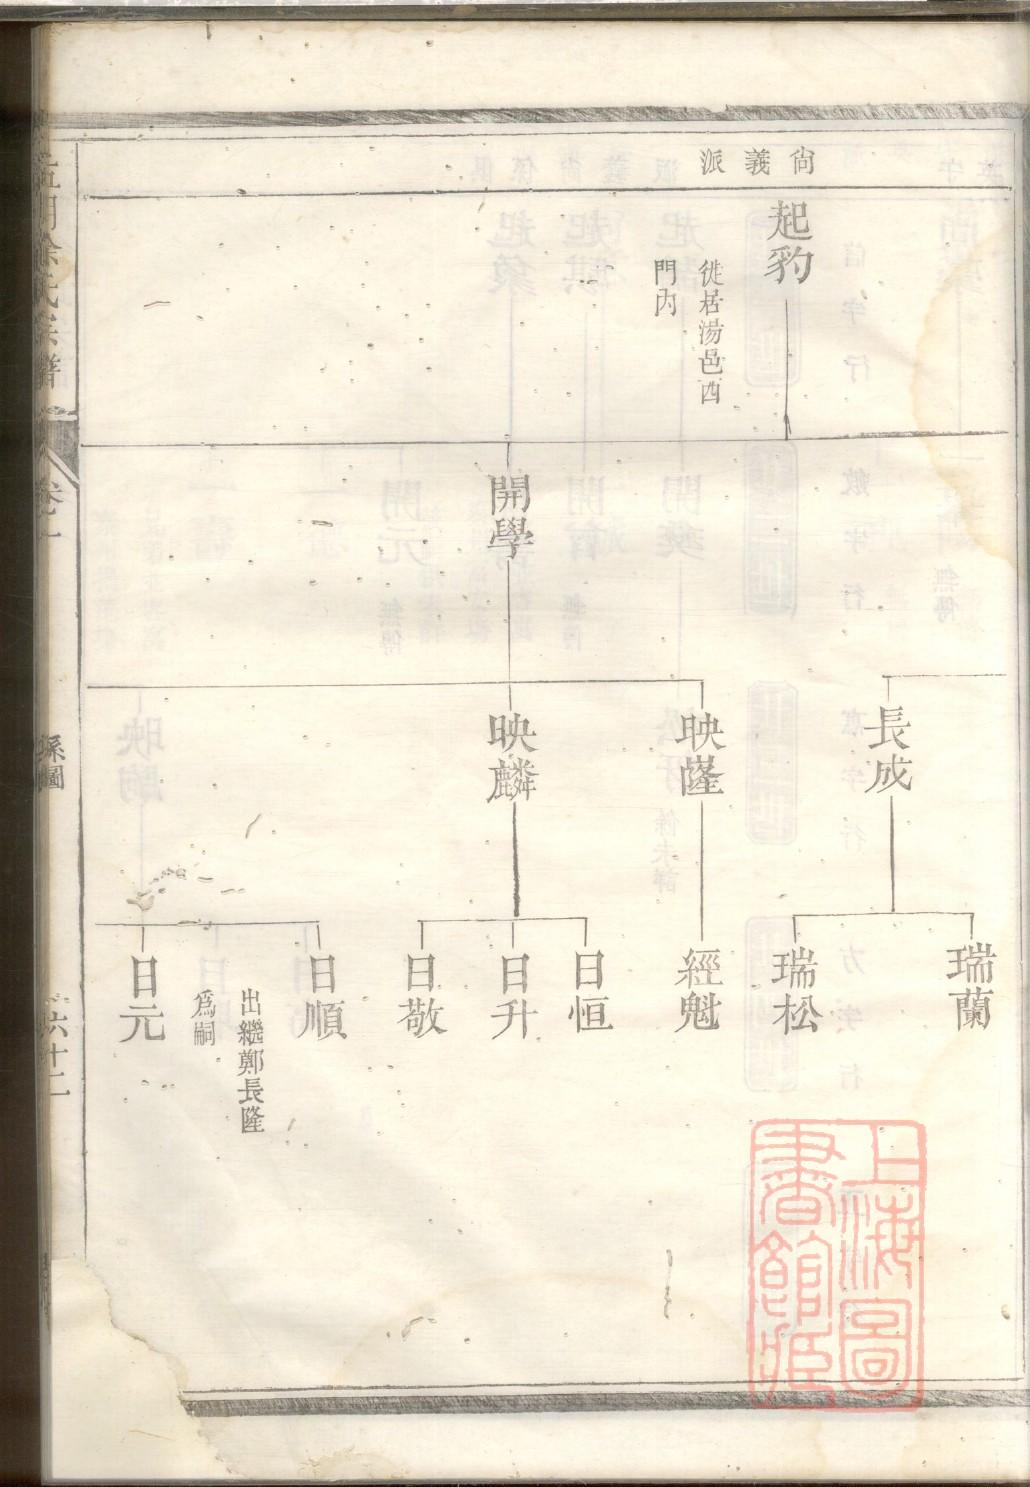 尙義派
起豹
徙居湯邑西
門內
開學
長成
映隆
映麟
瑞蘭
瑞松
經魁
日恒
日升
日敬
日順
出繼鄭長隆
爲嗣
日元
氏宗譜
卷一
系圖
六十二
上海圖
書館藏